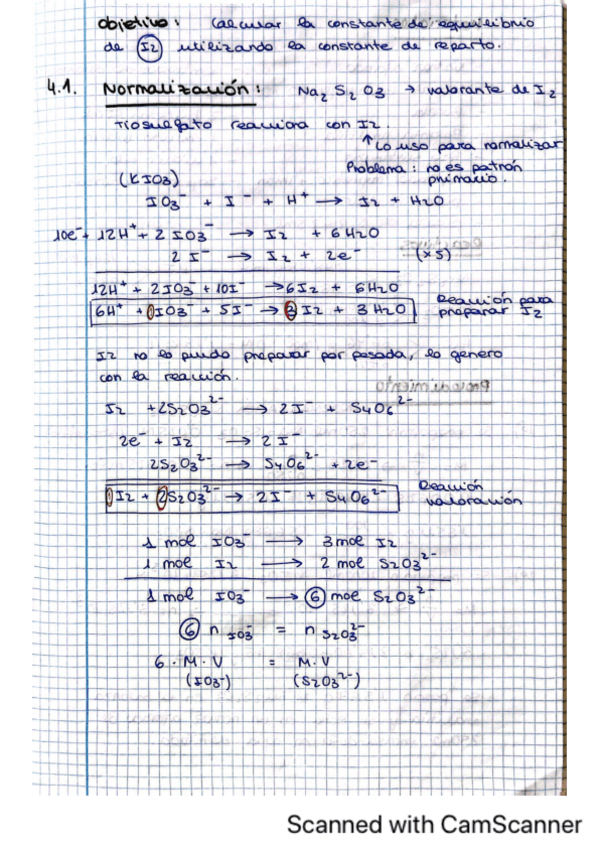 objetivo: Calcular la constante de equilibrio
de I2 utilizando la constante de reparto.
4.1. Normalización: Na2 S2 O3 → valorante de I2
Tiosulfato reacciona con I2.
↑ Lo uso para normalizar
Problema: no es patrón
primario.
(KIO3)
IO3⁻ + I⁻ + H⁺ → I2 + H2O
10e⁻ + 12H⁺ + 2 IO3⁻ → I2 + 6H2O
2 I⁻ → I2 + 2e⁻ (x5)
12H⁺ + 2IO3⁻ + 10I⁻ → 6I2 + 6H2O
6H⁺ + 1IO3⁻ + 5I⁻ → 3I2 + 3H2O
Reacción para
preparar I2
I2 no lo puedo preparar por pesada, lo genero
con la reacción.
I2 + 2S2O3²⁻ → 2I⁻ + S4O6²⁻
2e⁻ + I2 → 2I⁻
2S2O3²⁻ → S4O6²⁻ + 2e⁻
1I2 + 2S2O3²⁻ → 2I⁻ + S4O6²⁻
Reacción
valoración
1 mol IO3⁻ → 3 mol I2
1 mol I2 → 2 mol S2O3²⁻
1 mol IO3⁻ → 6 mol S2O3²⁻
6 n IO3⁻ = n S2O3²⁻
6 · M · V = M · V
(IO3⁻) (S2O3²⁻)
Scanned with CamScanner